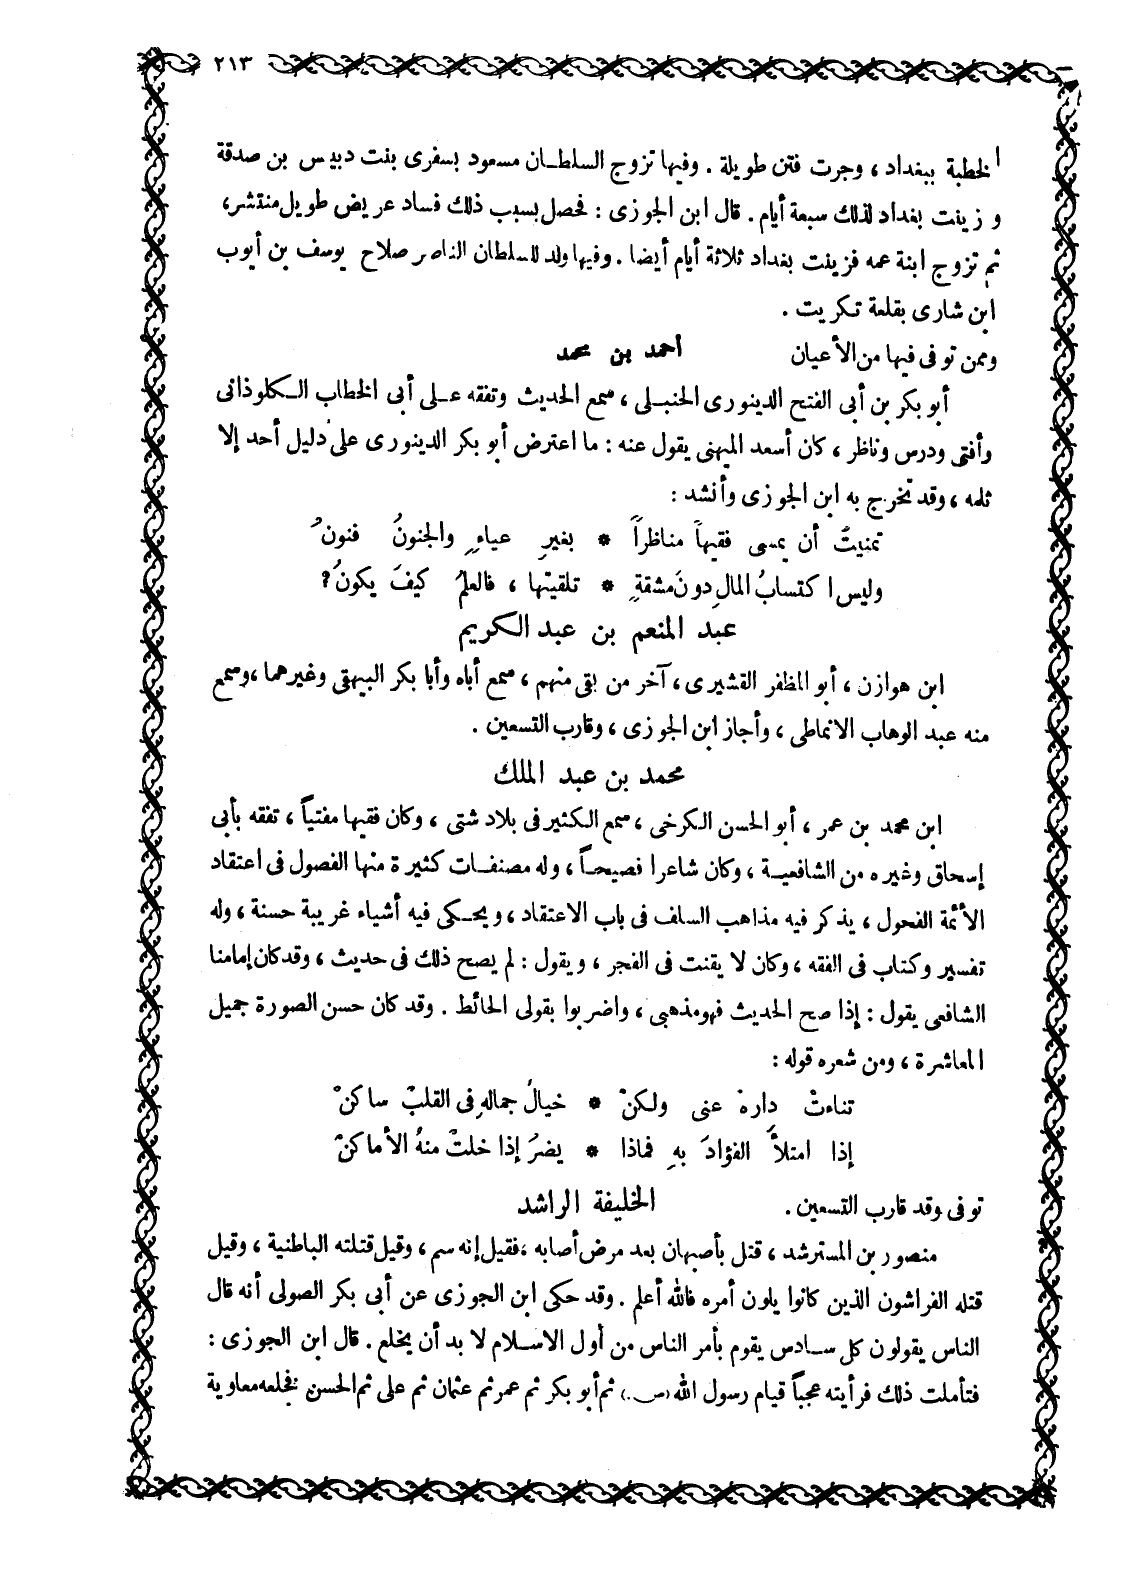 ٢١٣
الخطبة ببغداد ، وجرت فتن طويلة . وفيها تزوج السلطان مسعود بسفرى بنت دبيس بن صدقة
وزينت بغداد لذلك سبعة أيام . قال ابن الجوزى : فحصل بسبب ذلك فساد عريض طويل منتشر ،
ثم تزوج ابنة عمه فزينت بغداد ثلاثة أيام أيضا . وفيها ولد للسلطان الناصر صلاح يوسف بن أيوب
ابن شارى بقلعة تكريت .
وممن توفى فيها من الأعيان أحمد بن محمد
أبو بكر بن أبى الفتح الدينورى الحنبلى ، سمع الحديث وتفقه على أبى الخطاب الكلوذانى
وأفتى ودرس وناظر ، كان أسعد الميهنى يقول عنه : ما اعترض أبو بكر الدينورى على دليل أحد إلا
ثلمه ، وقد تخرج به ابن الجوزى وأنشد :
تمنيتَ أن يمسى فقيهاً مناظراً * بغيرِ عياءٍ والجنونُ فنونُ
وليس اكتسابُ المالِ دونَ مشقةٍ * تلقيتها ، فالعلمُ كيفَ يكونُ ؟
عبد المنعم بن عبد الكريم
ابن هوازن ، أبو المظفر القشيرى ، آخر من بقى منهم ، سمع أباه وأبا بكر البيهقى وغيرهما ، وسمع
منه عبد الوهاب الانماطى ، وأجاز ابن الجوزى ، وقارب التسعين .
محمد بن عبد الملك
ابن محمد بن عمر ، أبو الحسن الكرخى ، سمع الكثير فى بلاد شتى ، وكان فقيها مفتياً ، تفقه بأبى
إسحاق وغيره من الشافعية ، وكان شاعرا فصيحاً ، وله مصنفات كثيرة منها الفصول فى اعتقاد
الأئمة الفحول ، يذكر فيه مذاهب السلف فى باب الاعتقاد ، ويحكى فيه أشياء غريبة حسنة ، وله
تفسير وكتاب فى الفقه ، وكان لا يقنت فى الفجر ، ويقول : لم يصح ذلك فى حديث ، وقد كان إمامنا
الشافعى يقول : إذا صح الحديث فهو مذهبى ، واضربوا بقولى الحائط . وقد كان حسن الصورة جميل
المعاشرة ، ومن شعره قوله :
تناءتْ دارهُ عنى ولكنْ * خيالُ جمالهِ فى القلبْ ساكنْ
إذا امتلأَ الفؤادَ بهِ فماذا * يضرُ إذا خلتْ منهُ الأماكنْ
توفى وقد قارب التسعين . الخليفة الراشد
منصور بن المسترشد ، قتل بأصبهان بعد مرض أصابه ، فقيل إنه سم ، وقيل قتلته الباطنية ، وقيل
قتله الفراشون الذين كانوا يلون أمره فالله أعلم . وقد حكى ابن الجوزى عن أبى بكر الصولى أنه قال
الناس يقولون كل سادس يقوم بأمر الناس من أول الاسلام لا بد أن يخلع . قال ابن الجوزى :
فتأملت ذلك فرأيته عجباً قيام رسول الله (ص) ثم أبو بكر ثم عمر ثم عثمان ثم على ثم الحسن فخلعه معاوية